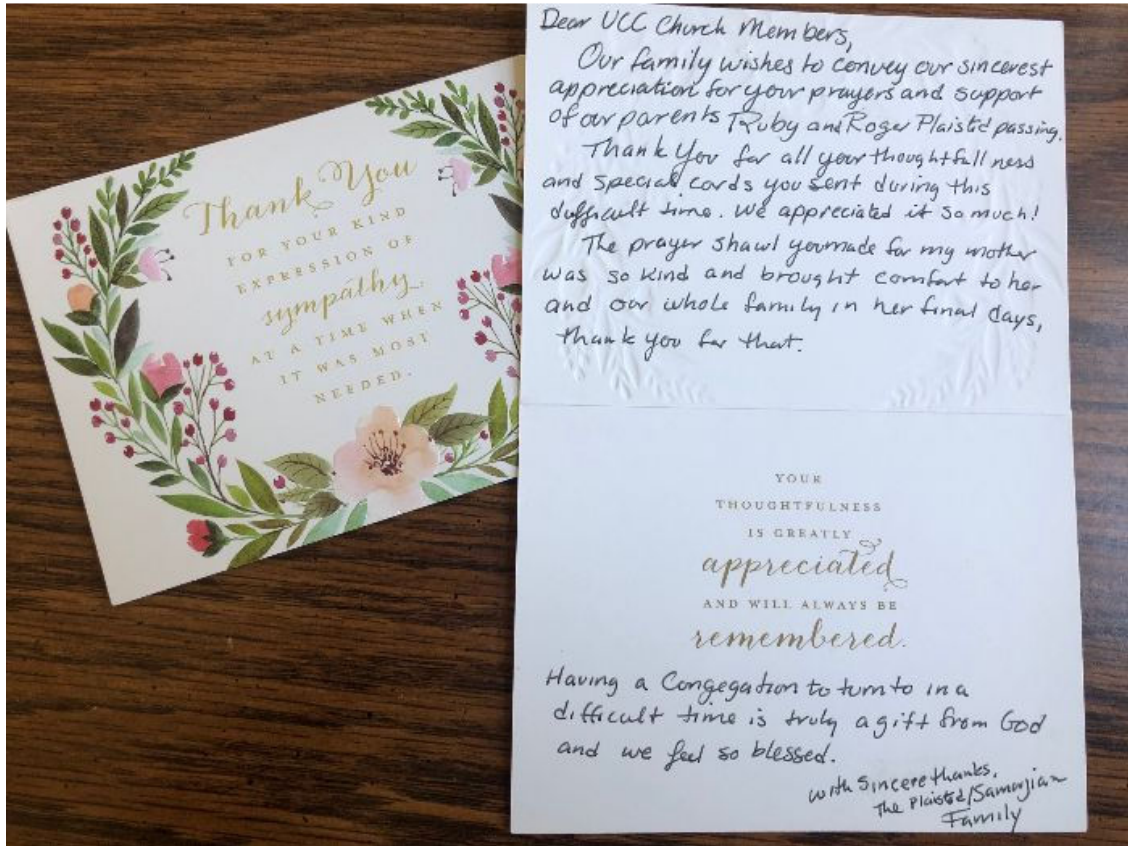 Thank You
FOR YOUR KIND
EXPRESSION OF
sympathy
AT A TIME WHEN
IT WAS MOST
NEEDED.
Dear UCC Church Members,
Our family wishes to convey our sincerest
appreciation for your prayers and support
of our parents Ruby and Roger Plaisted passing.
Thank You for all your thoughtfullness
and special cards you sent during this
dufficult time. We appreciated it so much!
The prayer shawl you made for my mother
was so kind and brought comfort to her
and our whole family in her final days,
thank you for that.
YOUR
THOUGHTFULNESS
IS GREATLY
appreciated
AND WILL ALWAYS BE
remembered.
Having a Congegation to turn to in a
difficult time is truly a gift from God
and we feel so blessed.
with Sincere thanks,
The Plaisted/Samurjian
Family